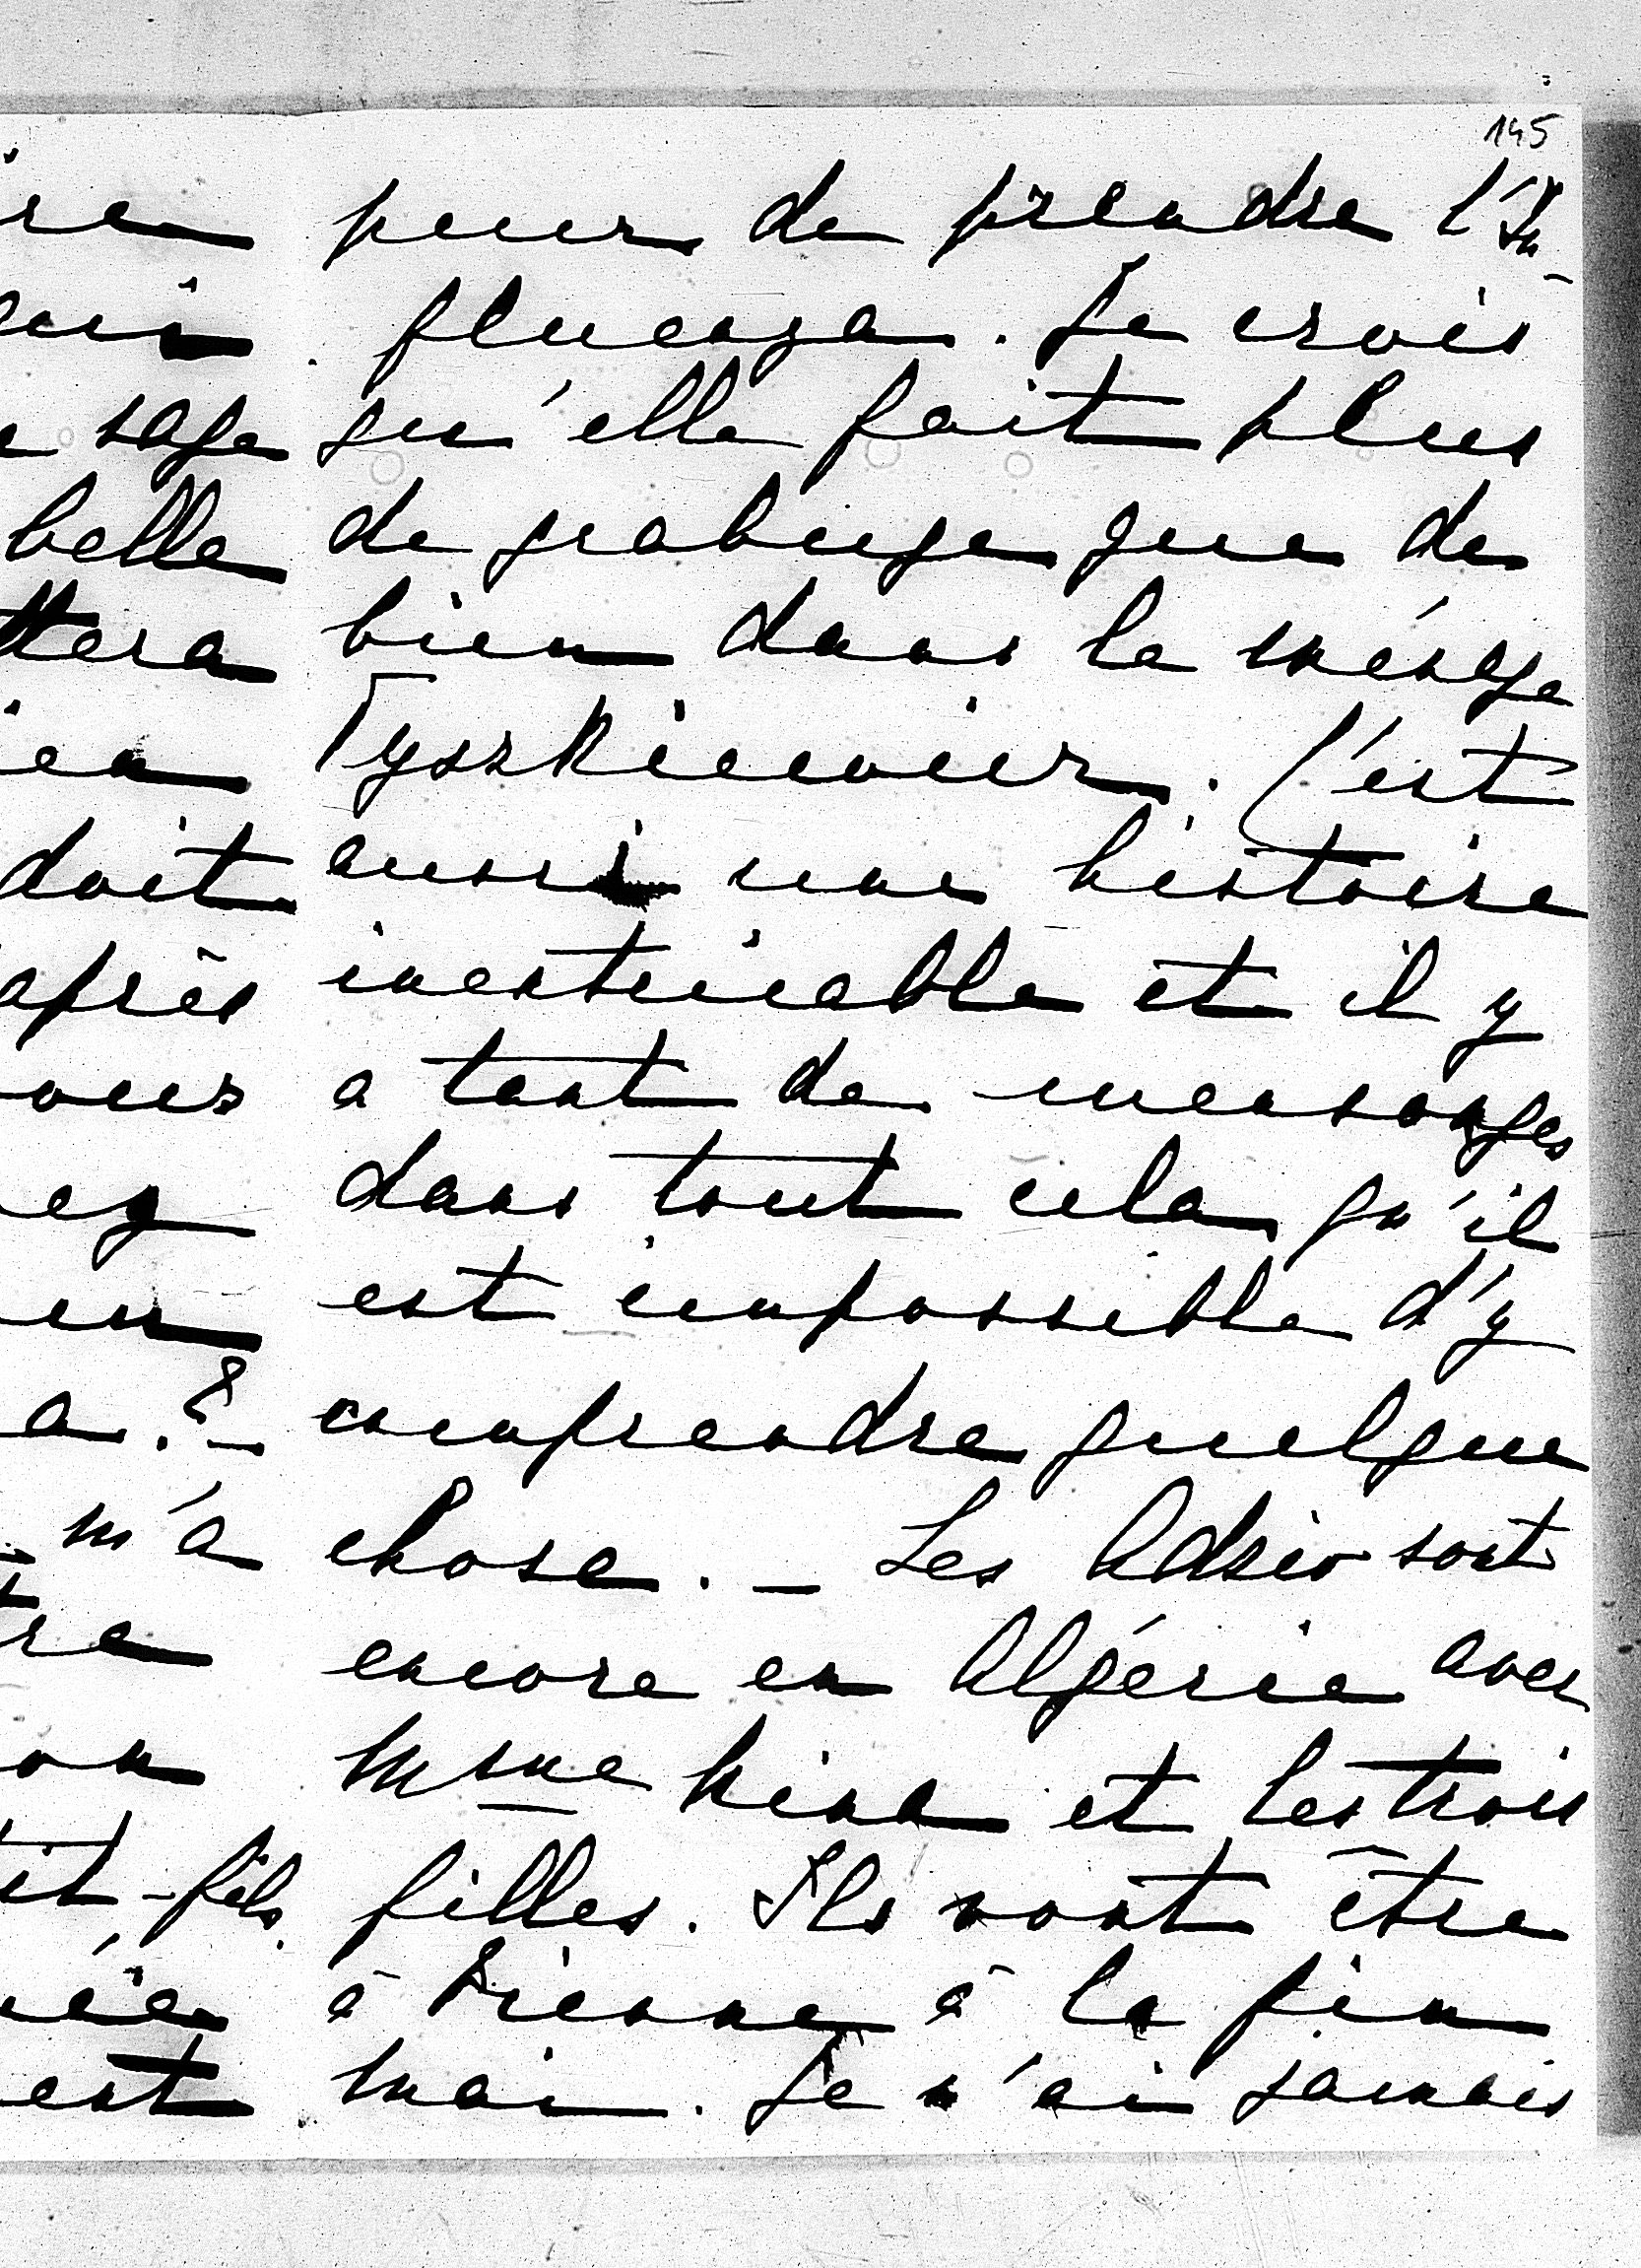 sage
belle
doit
après
m'a
it-fils.
est
145
peur de prendre l'In-
fluenza. Je crois
qu'elle fait plus
de grabuge que de
bien dans le ménage
Tyszkiewicz. C'est
aussi une histoire
inextricable et il y
a tant de mensonges
dans tout cela qu'il
est impossible d'y
comprendre quelque
chose. — Les Adzio sont
encore en Algérie avec
Mme Nina et les trois
filles. Ils vont être
à Vienne à la fin
mai. Je n'ai jamais